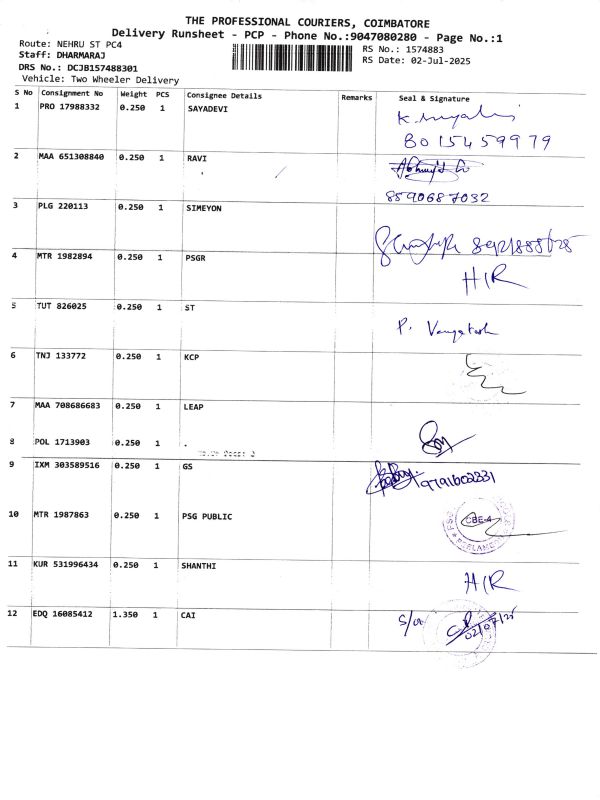 THE PROFESSIONAL COURIERS, COIMBATORE
Delivery Runsheet - PCP - Phone No.:9047080280 - Page No.:1
Route: NEHRU ST PC4
RS No.: 1574883
Staff: DHARMARAJ
RS Date: 02-Jul-2025
DRS No.: DCJB157488301
Vehicle: Two Wheeler Delivery
S No Consignment No Weight PCS Consignee Details Remarks Seal & Signature
1 PRO 17988332 0.250 1 SAYADEVI
8015459979
2 MAA 651308840 0.250 1 RAVI
8590687032
3 PLG 220113 0.250 1 SIMEYON
4 MTR 1982894 0.250 1 PSGR
H/R
5 TUT 826025 0.250 1 ST P. Vangatesh
6 TNJ 133772 0.250 1 KCP
7 MAA 708686683 0.250 1 LEAP
8 POL 1713903 0.250 1 .
9 IXM 303589516 0.250 1 GS 9791602331
10 MTR 1987863 0.250 1 PSG PUBLIC CBE-4
11 KUR 531996434 0.250 1 SHANTHI H/R
12 EDQ 16085412 1.350 1 CAI 02/07/25